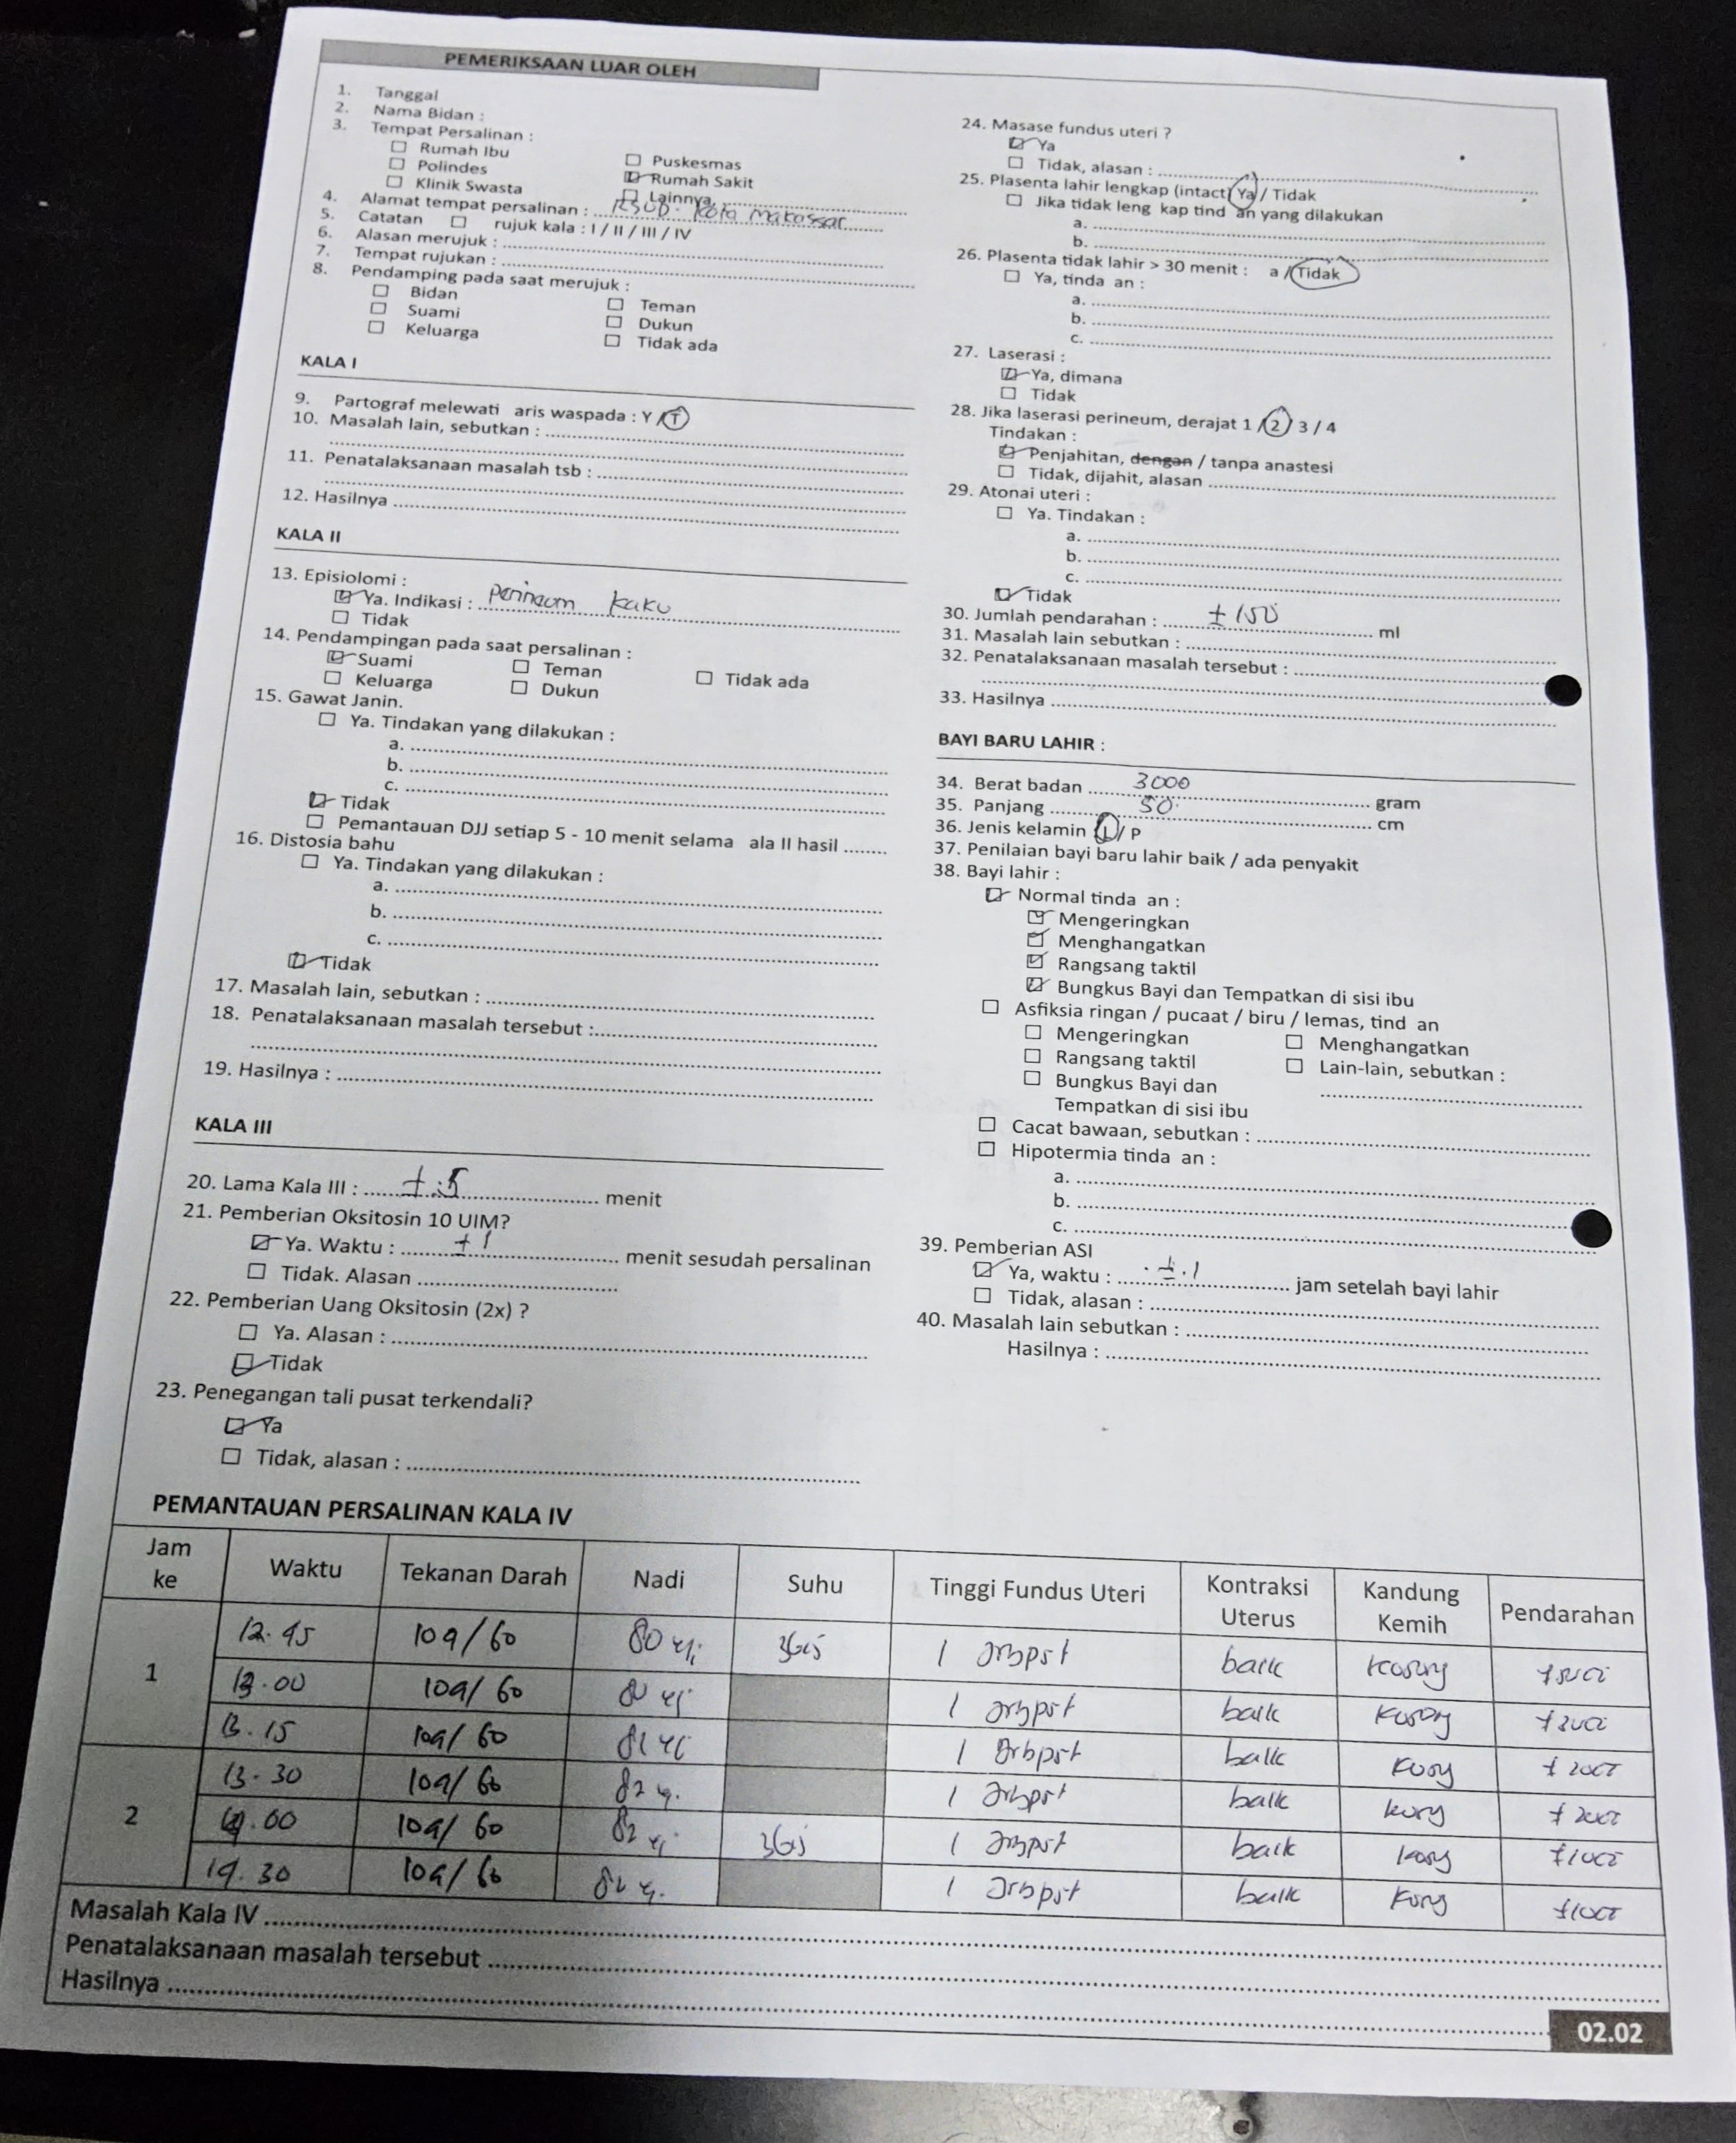 PEMERIKSAAN LUAR OLEH
1. Tanggal
2. Nama Bidan :
3. Tempat Persalinan :
☐ Rumah Ibu
☐ Puskesmas
☐ Polindes
☑ Rumah Sakit
☐ Klinik Swasta
☐ Lainnya
4. Alamat tempat persalinan : RSUD. Kota Makassar
5. Catatan ☐ rujuk kala : I / II / III / IV
6. Alasan merujuk :
7. Tempat rujukan :
8. Pendamping pada saat merujuk :
☐ Bidan ☐ Teman
☐ Suami ☐ Dukun
☐ Keluarga ☐ Tidak ada
KALA I
9. Partograf melewati aris waspada : Y / T
10. Masalah lain, sebutkan :
11. Penatalaksanaan masalah tsb :
12. Hasilnya
KALA II
13. Episiolomi :
☑ Ya. Indikasi : perineum kaku
☐ Tidak
14. Pendampingan pada saat persalinan :
☑ Suami ☐ Teman ☐ Tidak ada
☐ Keluarga ☐ Dukun
15. Gawat Janin.
☐ Ya. Tindakan yang dilakukan :
a.
b.
c.
☑ Tidak
☐ Pemantauan DJJ setiap 5 - 10 menit selama ala II hasil
16. Distosia bahu
☐ Ya. Tindakan yang dilakukan :
a.
b.
c.
☑ Tidak
17. Masalah lain, sebutkan :
18. Penatalaksanaan masalah tersebut :
19. Hasilnya :
KALA III
20. Lama Kala III : ± 5 menit
21. Pemberian Oksitosin 10 UIM?
☑ Ya. Waktu : ± 1 menit sesudah persalinan
☐ Tidak. Alasan
22. Pemberian Uang Oksitosin (2x) ?
☐ Ya. Alasan :
☑ Tidak
23. Penegangan tali pusat terkendali?
☑ Ya
☐ Tidak, alasan :
24. Masase fundus uteri ?
☑ Ya
☐ Tidak, alasan :
25. Plasenta lahir lengkap (intact) Ya / Tidak
☐ Jika tidak leng kap tind an yang dilakukan
a.
b.
26. Plasenta tidak lahir > 30 menit : a / Tidak
☐ Ya, tinda an :
a.
b.
c.
27. Laserasi :
☑ Ya, dimana
☐ Tidak
28. Jika laserasi perineum, derajat 1 / 2 / 3 / 4
Tindakan :
☑ Penjahitan, dengan / tanpa anastesi
☐ Tidak, dijahit, alasan
29. Atonai uteri :
☐ Ya. Tindakan :
a.
b.
c.
☑ Tidak
30. Jumlah pendarahan : ± 150 ml
31. Masalah lain sebutkan :
32. Penatalaksanaan masalah tersebut :
33. Hasilnya
BAYI BARU LAHIR :
34. Berat badan 3000 gram
35. Panjang 50 cm
36. Jenis kelamin : L / P
37. Penilaian bayi baru lahir baik / ada penyakit
38. Bayi lahir :
☑ Normal tinda an :
☑ Mengeringkan
☑ Menghangatkan
☑ Rangsang taktil
☑ Bungkus Bayi dan Tempatkan di sisi ibu
☐ Asfiksia ringan / pucaat / biru / lemas, tind an
☐ Mengeringkan ☐ Menghangatkan
☐ Rangsang taktil ☐ Lain-lain, sebutkan :
☐ Bungkus Bayi dan
Tempatkan di sisi ibu
☐ Cacat bawaan, sebutkan :
☐ Hipotermia tinda an :
a.
b.
c.
39. Pemberian ASI
☑ Ya, waktu : ± 1 jam setelah bayi lahir
☐ Tidak, alasan :
40. Masalah lain sebutkan :
Hasilnya :
PEMANTAUAN PERSALINAN KALA IV
Jam ke Waktu Tekanan Darah Nadi Suhu Tinggi Fundus Uteri Kontraksi Uterus Kandung Kemih Pendarahan
1 12.45 109/60 80 1 baik
13.00 109/60 1 baik
13.15 109/60 1 baik
2 13.30 109/60 82 1 baik
109/60 82 1 baik
14.30 109/60 1 baik
Masalah Kala IV
Penatalaksanaan masalah tersebut
Hasilnya
02.02